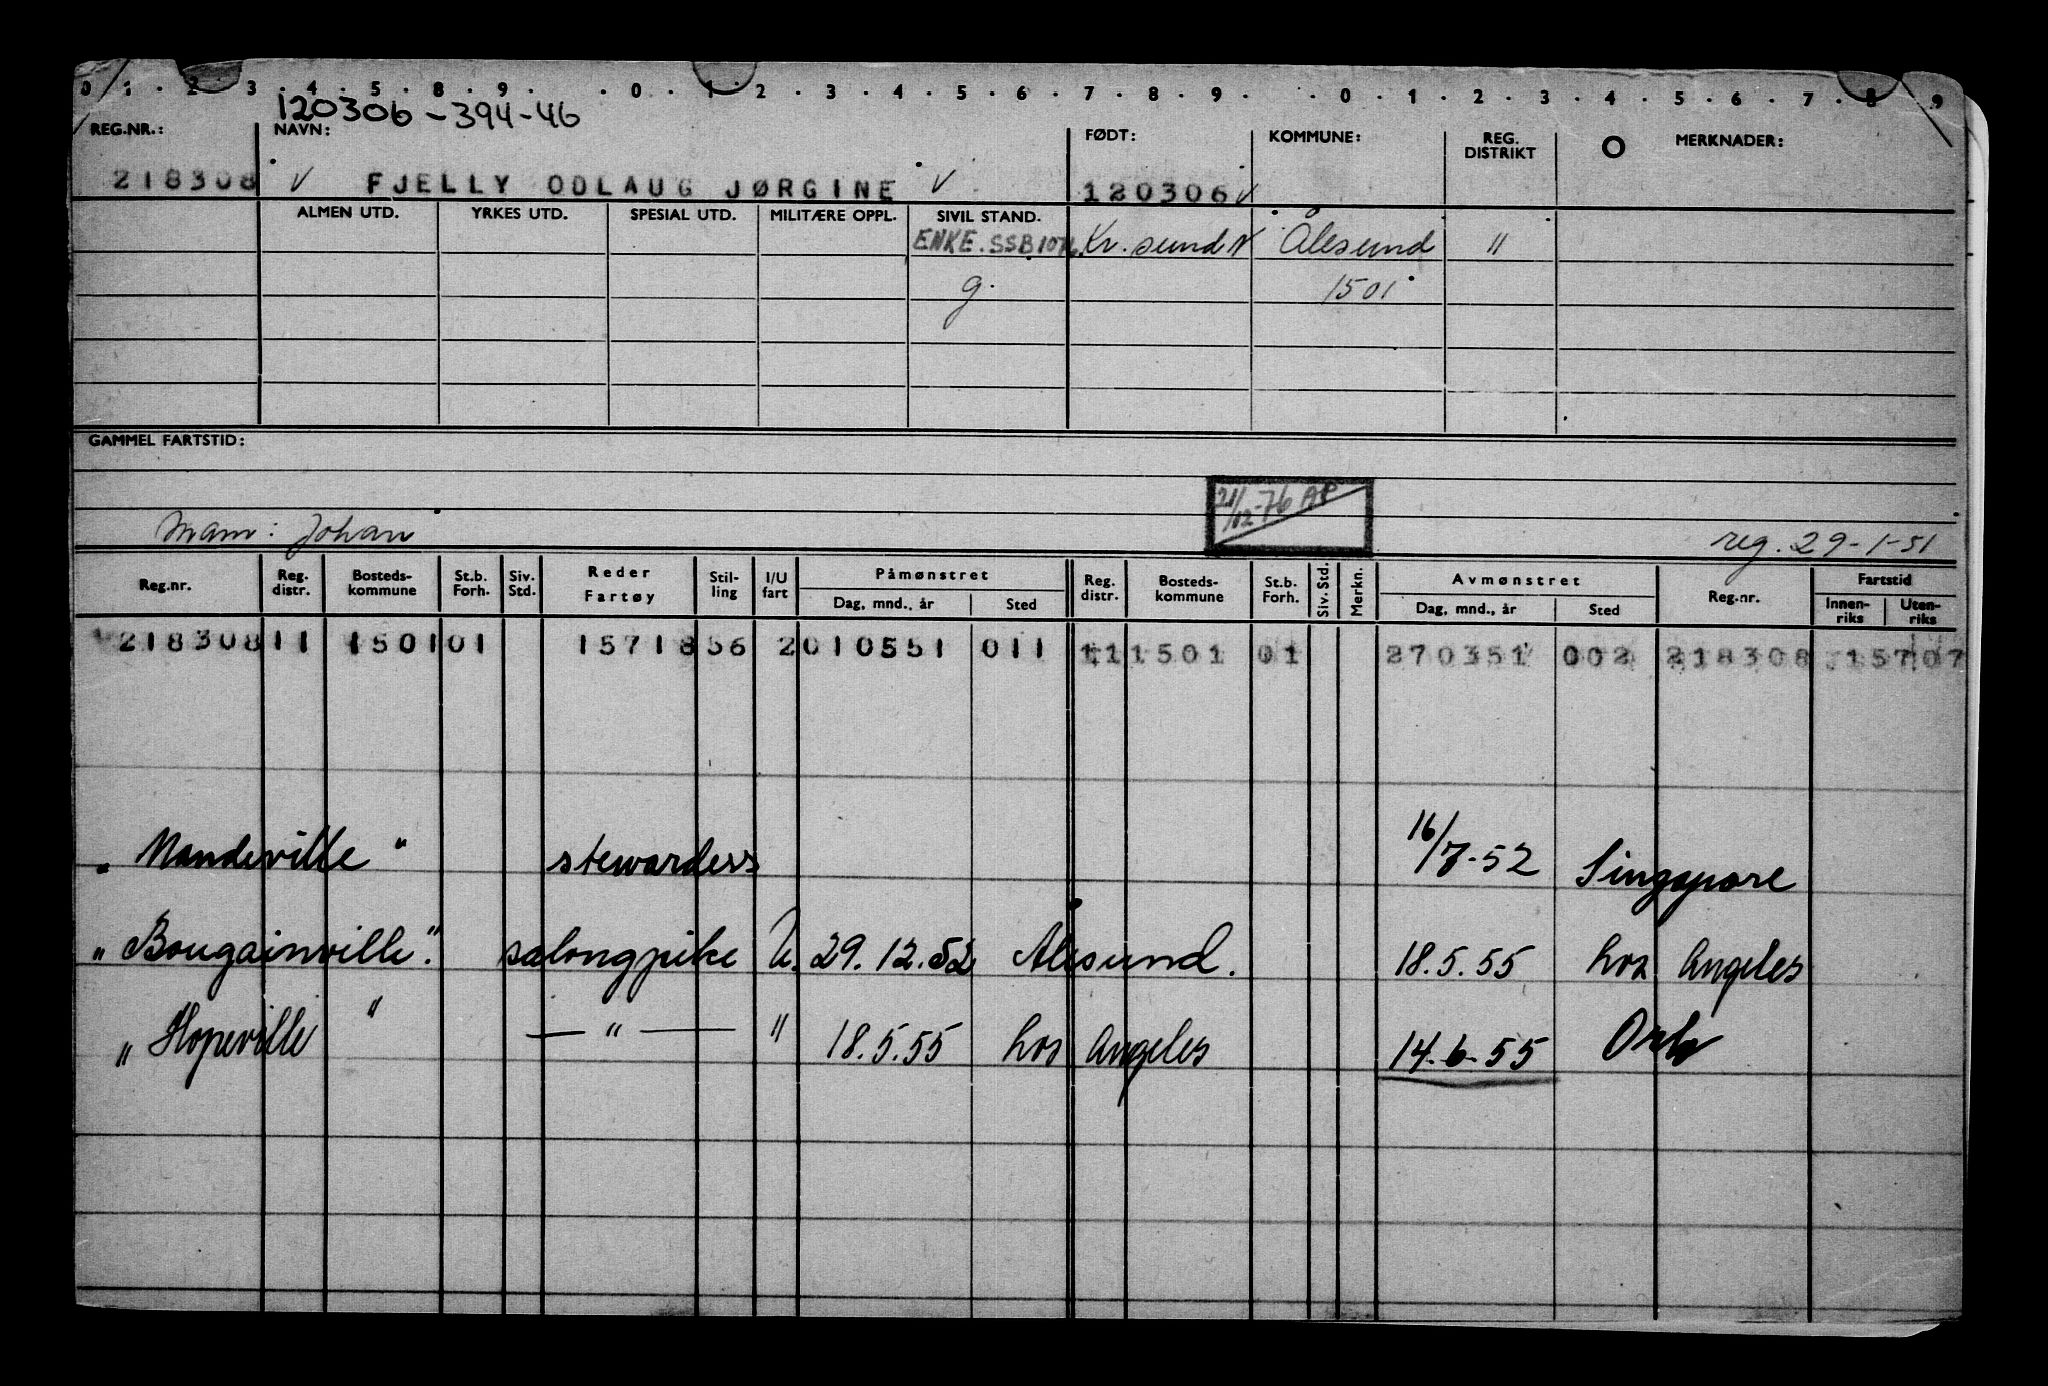 0 1 . 2 . 3 . 4 . 5 . 8 . 9 . . 0 . 1 . 2 . 3 . 4 . 5 . 6 . 7 . 8 . 9 . . 0 . 1 . 2 . 3 . 4 . 5 . 6 . 7 . 8 . 9
120306-394-46
REG.NR.: NAVN: FØDT: KOMMUNE: REG. DISTRIKT O MERKNADER:
218308 V FJELLY ODLAUG JØRGINE V 120306 V
ALMEN UTD. YRKES UTD. SPESIAL UTD. MILITÆRE OPPL. SIVIL STAND.
ENKE. SSB 1076 Kr. sund N Ålesund "
g. 1501
GAMMEL FARTSTID:
21/12-76 AP
Mann: Johan reg. 29-1-51
Reg.nr. Reg. distr. Bosteds- kommune St.b. Forh. Siv. Std. Reder Fartøy Stil- ling I/U fart Påmønstret Reg. distr. Bosteds- kommune St.b. Forh. Siv. Std. Merkn. Avmønstret Reg.nr. Fartstid
Dag, mnd., år Sted Dag, mnd., år Sted Innen- riks Uten- riks
218308 11 1501 01 15718 56 2 010551 011 11 1501 01 270351 002 218308 15707
"Mandeville" stewardess 16/7-52 Singapore
"Bougainville". salongpike U. 29.12.52 Ålesund. 18.5.55 Los Angeles
"Hopeville" — " — " 18.5.55 Los Angeles 14.6.55 Oslo